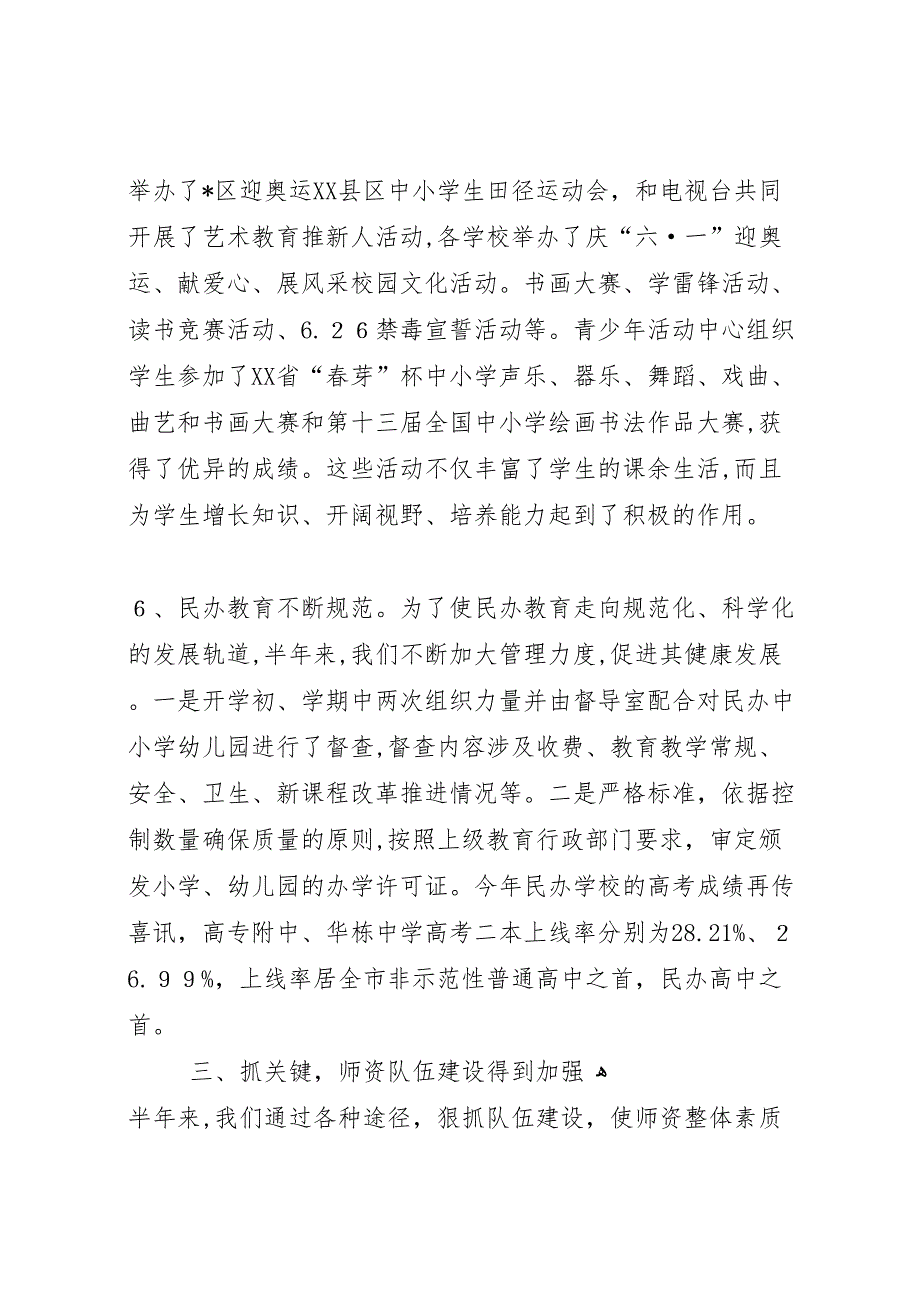 举办了*区迎奥运XX县区中小学生田径运动会，和电视台共同
开展了艺术教育推新人活动,各学校举办了庆“六·一”迎奥
运、献爱心、展风采校园文化活动。书画大赛、学雷锋活动、
读书竞赛活动、6.２６禁毒宣誓活动等。青少年活动中心组织
学生参加了XX省“春芽”杯中小学声乐、器乐、舞蹈、戏曲、
曲艺和书画大赛和第十三届全国中小学绘画书法作品大赛,获
得了优异的成绩。这些活动不仅丰富了学生的课余生活,而且
为学生增长知识、开阔视野、培养能力起到了积极的作用。
６、民办教育不断规范。为了使民办教育走向规范化、科学化
的发展轨道,半年来,我们不断加大管理力度,促进其健康发展
。一是开学初、学期中两次组织力量并由督导室配合对民办中
小学幼儿园进行了督查,督查内容涉及收费、教育教学常规、
安全、卫生、新课程改革推进情况等。二是严格标准，依据控
制数量确保质量的原则,按照上级教育行政部门要求，审定颁
发小学、幼儿园的办学许可证。今年民办学校的高考成绩再传
喜讯，高专附中、华栋中学高考二本上线率分别为28.21%、２
6.９９%，上线率居全市非示范性普通高中之首，民办高中之
首。
三、抓关键，师资队伍建设得到加强
半年来,我们通过各种途径，狠抓队伍建设，使师资整体素质